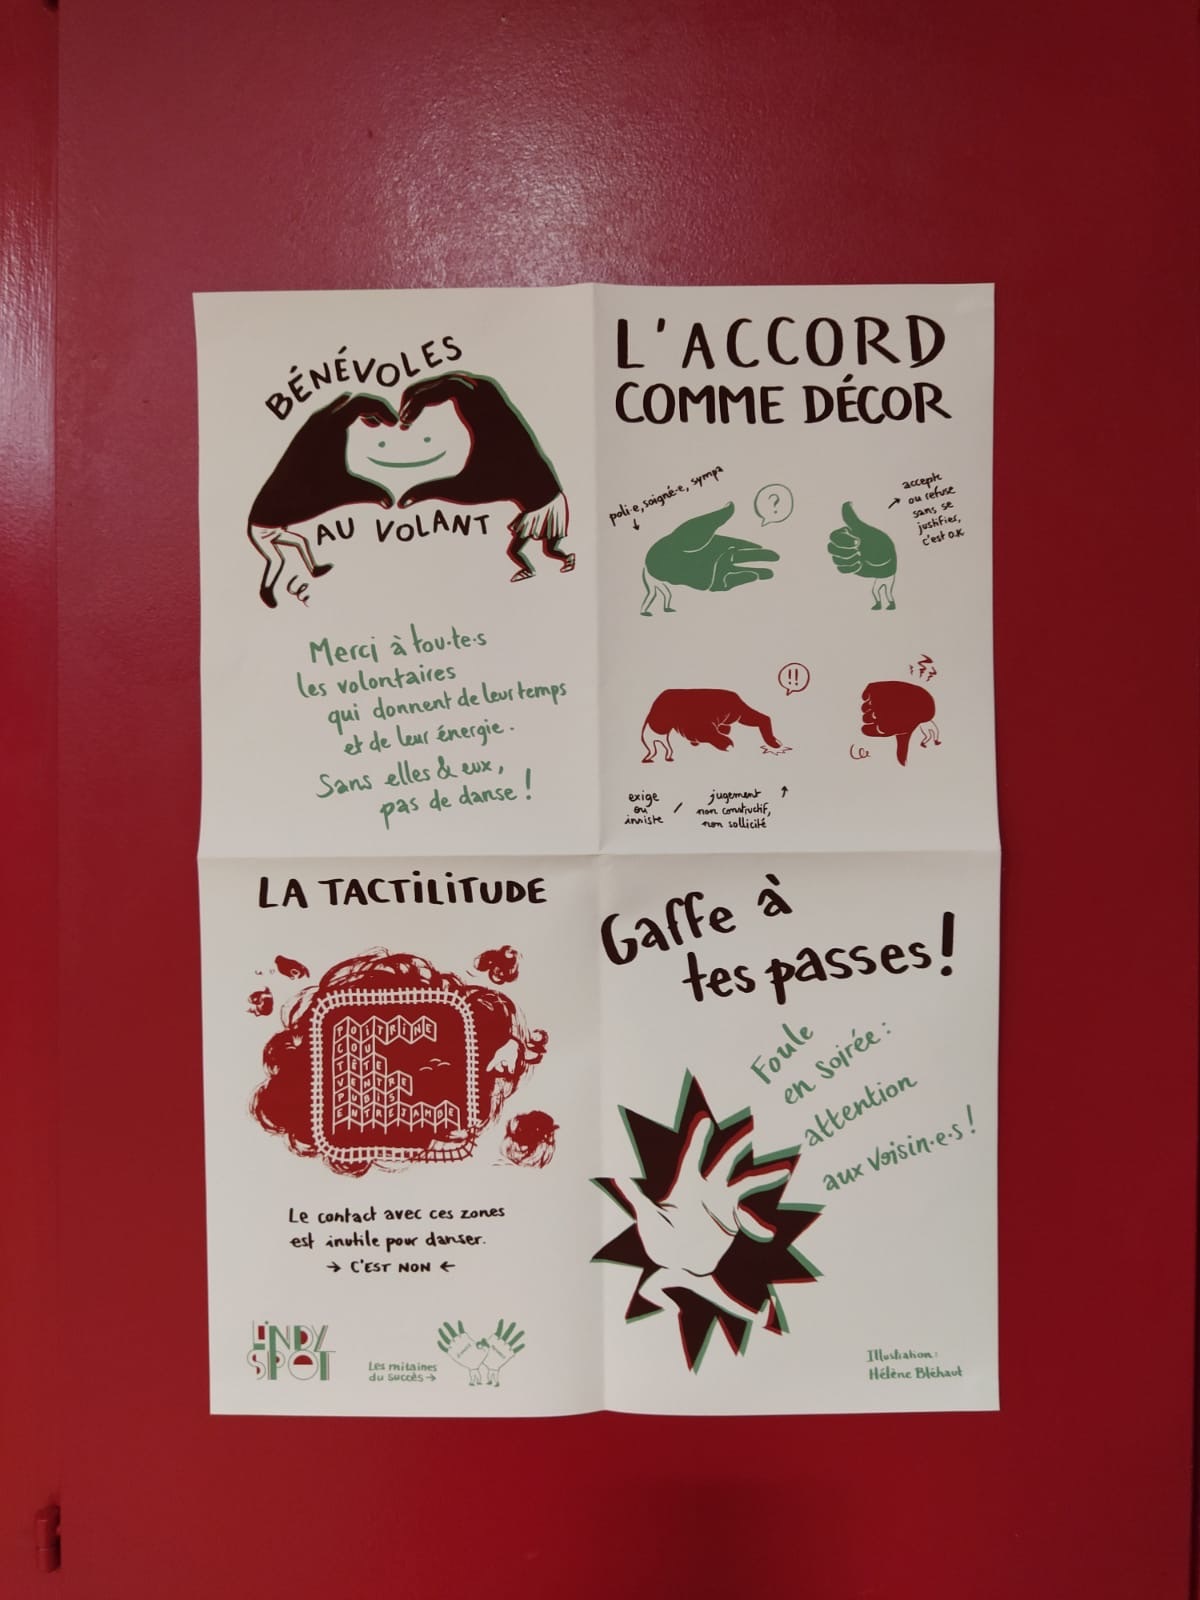 BÉNÉVOLES
AU VOLANT
Merci à tou·te·s
les volontaires
qui donnent de leur temps
et de leur énergie.
Sans elles & eux,
pas de danse !
L'ACCORD
COMME DÉCOR
poli·e, soigné·e, sympa
?
accepte
ou refuse
sans se
justifier,
c'est OK
!!
exige
ou
insiste
/
jugement
non constructif,
non sollicité
LA TACTILITUDE
POITRINE
COU
TÊTE
VENTRE
PUBIS
ENTREJAMBE
Le contact avec ces zones
est inutile pour danser.
→ C'EST NON ←
LINDY
SPOT
Les mitaines
du succès →
Gaffe à
tes passes !
Foule
en soirée :
attention
aux voisin·e·s !
Illustration :
Hélène Bléhaut